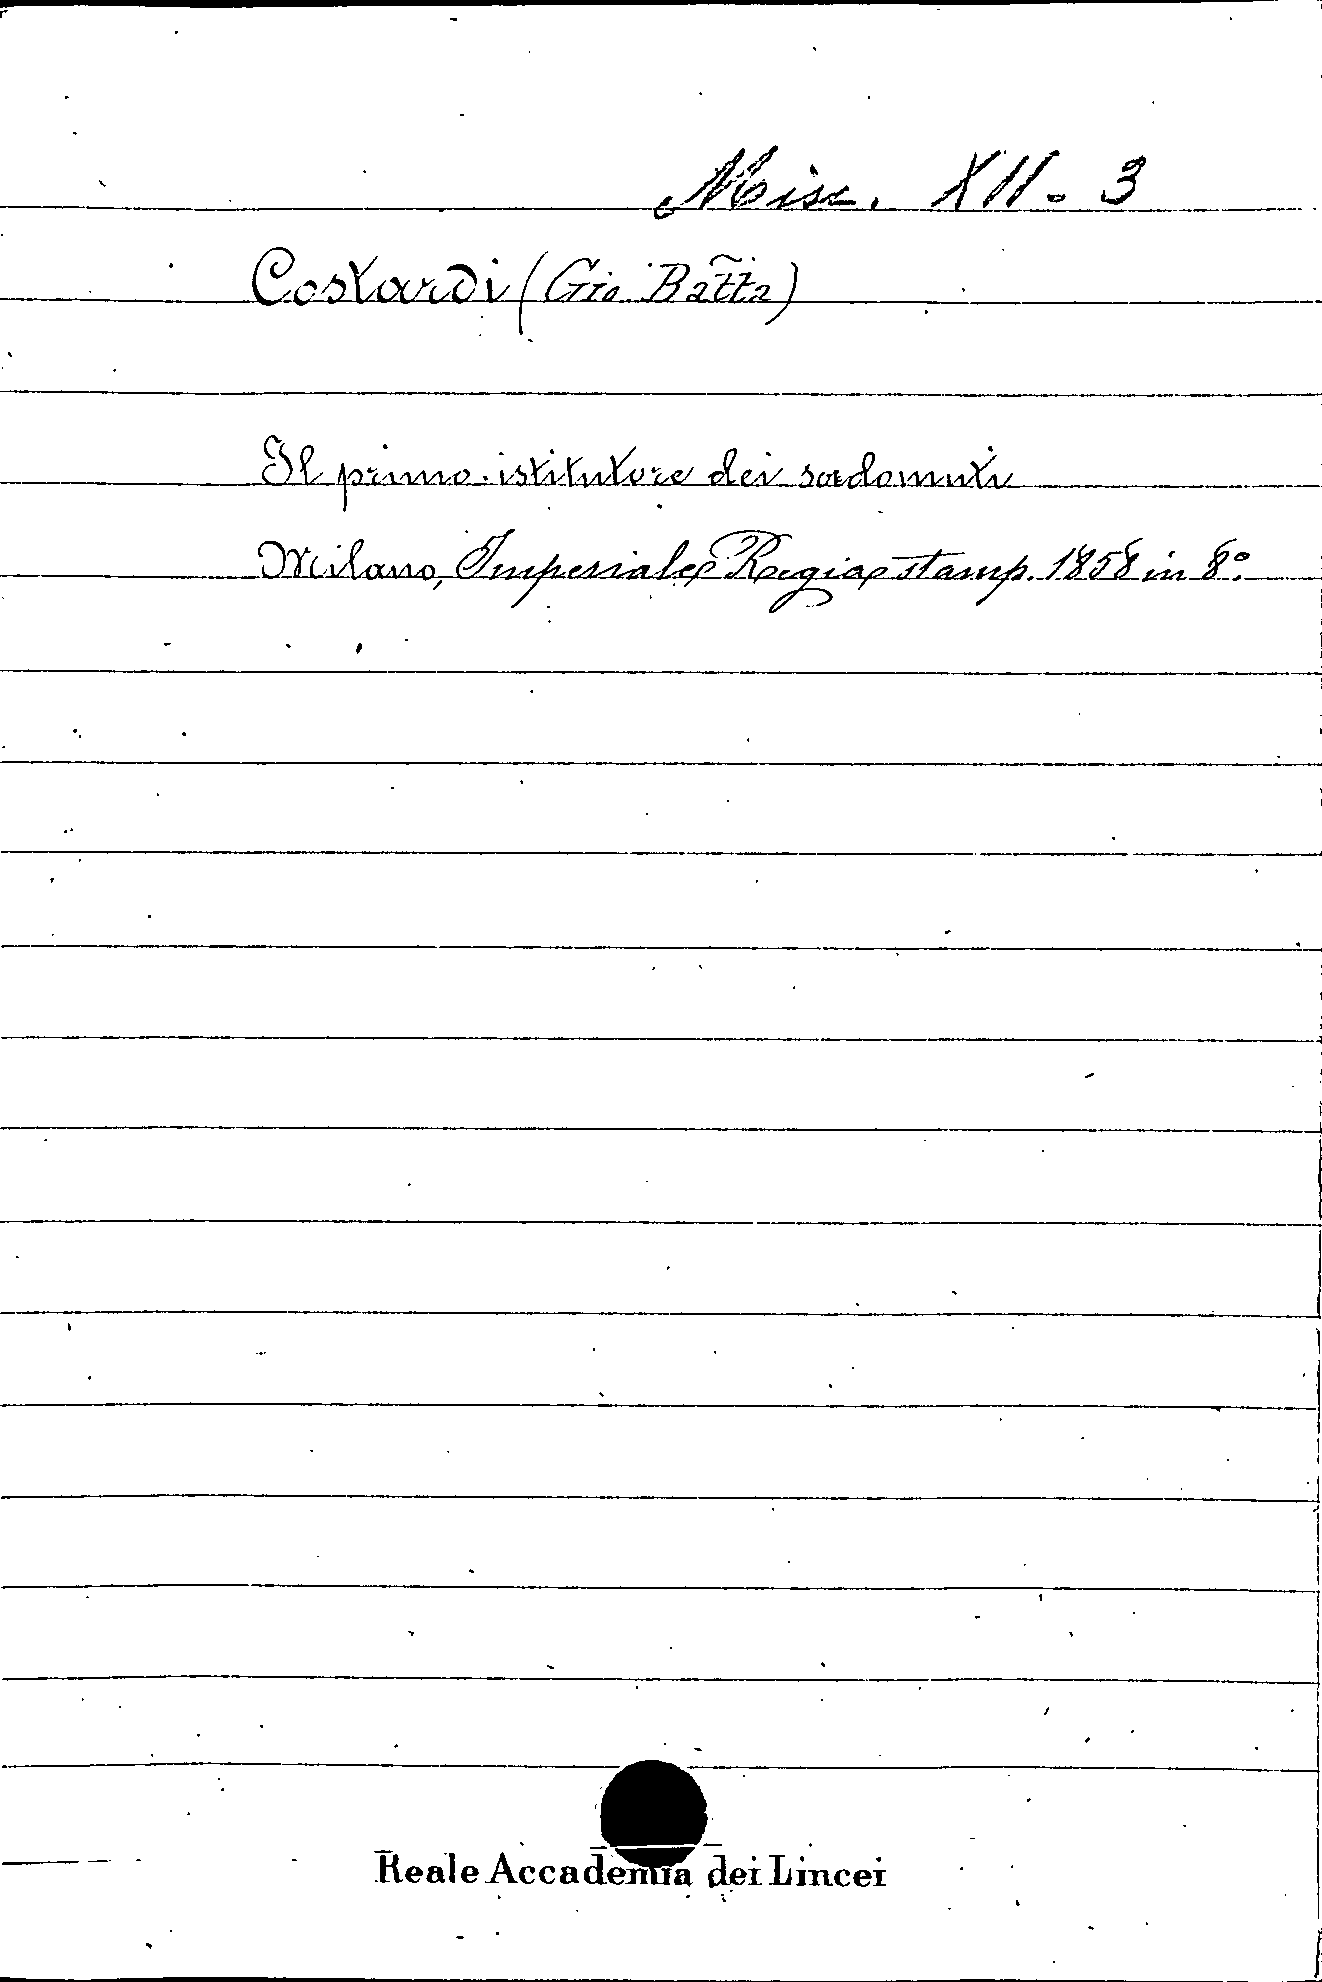 Misc. XII - 3
Costardi (Gio Batta)
Il primo istitutore dei sordomuti
Milano, Imperiale Regia stamp. 1858 in 8º.
Reale Accademia dei Lincei